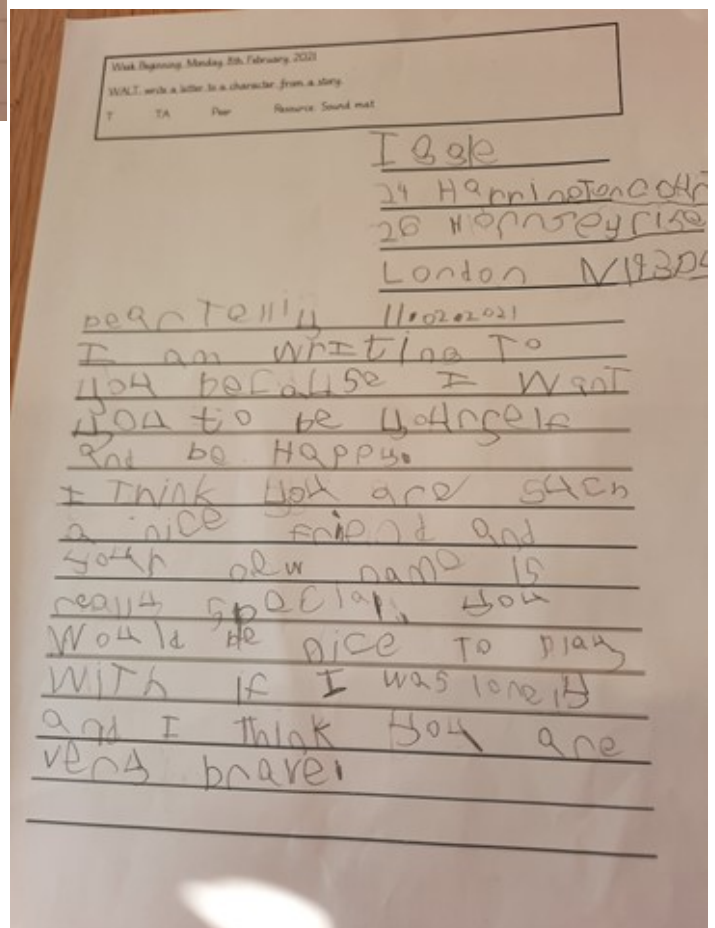 Week Beginning: Monday, 8th February, 2021
WALT: write a letter to a character from a story.
T TA Peer Resource: Sound mat
24
26 Hornsey rise
London
Dear Telly 11.02.2021
I am writing To
you because I want
you to be yourself
and be Happy.
I Think you are such
a nice friend and
your new name is
really special. you
Would be nice To play
With if I was lonely
and I think you are
very brave.